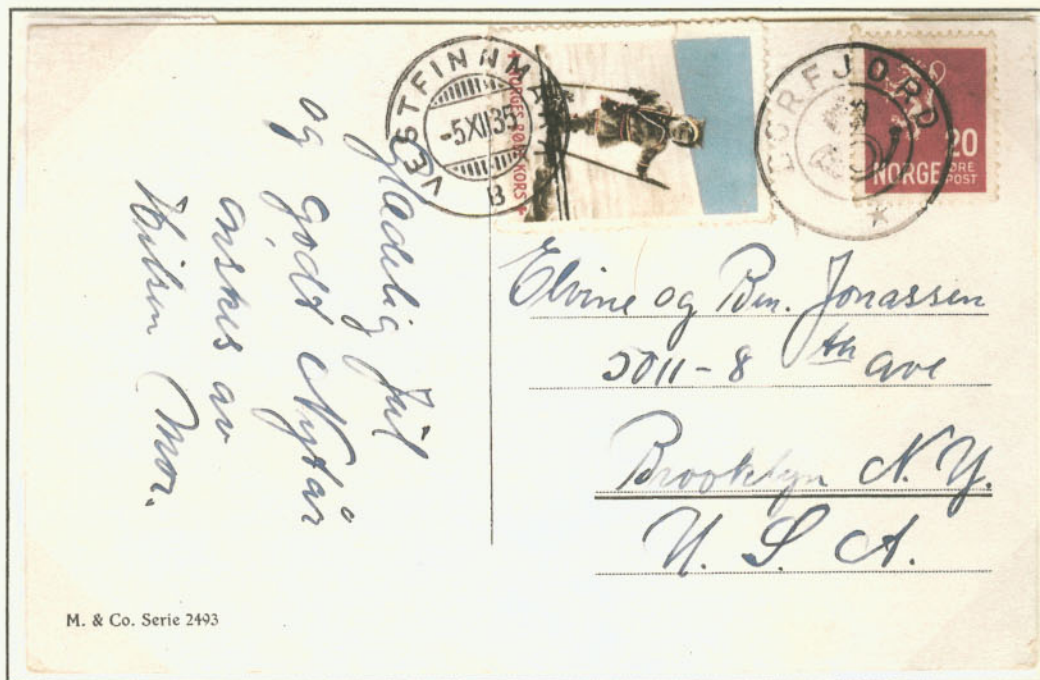 VESTFINNMARK
-5XII35
B
+ NORGES RØDE KORS +
NORGE
20
ØRE
POST
Glædelig Jul
og godt Nytår
ønskes av
Hilsen Mor.
Elvine og Ben. Jonassen
5011-8 th ave
Brooklyn N. Y.
U. S. A.
M. & Co. Serie 2493